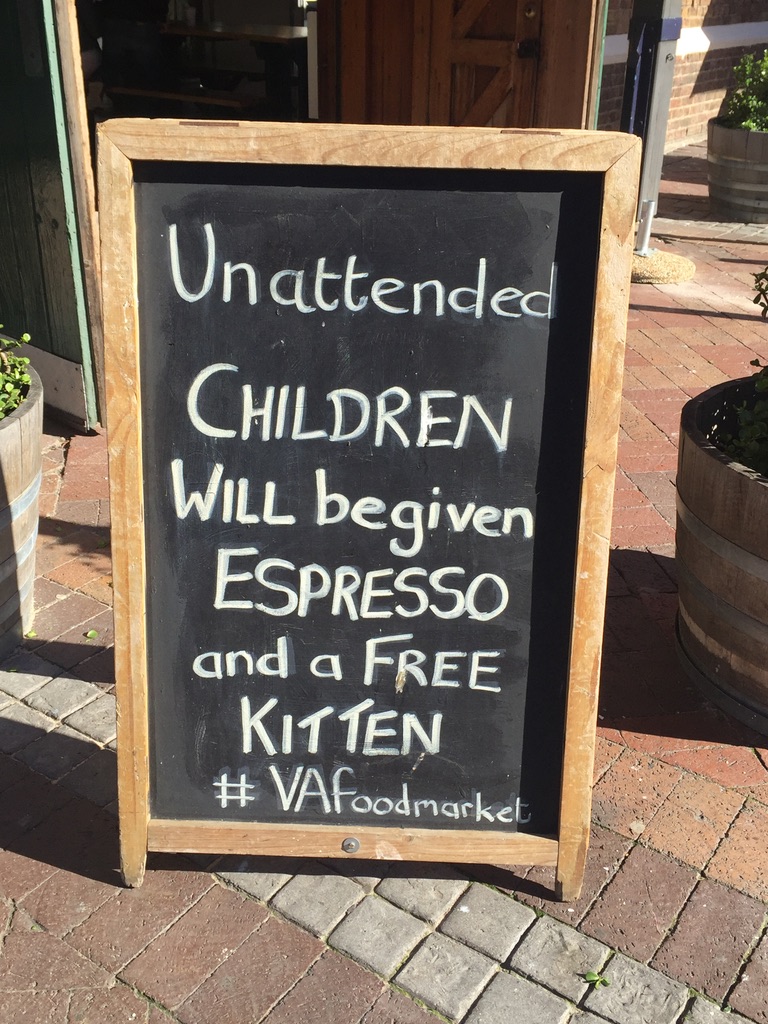 Unattended
CHILDREN
WILL be given
ESPRESSO
and a FREE
KITTEN
# VAfoodmarket